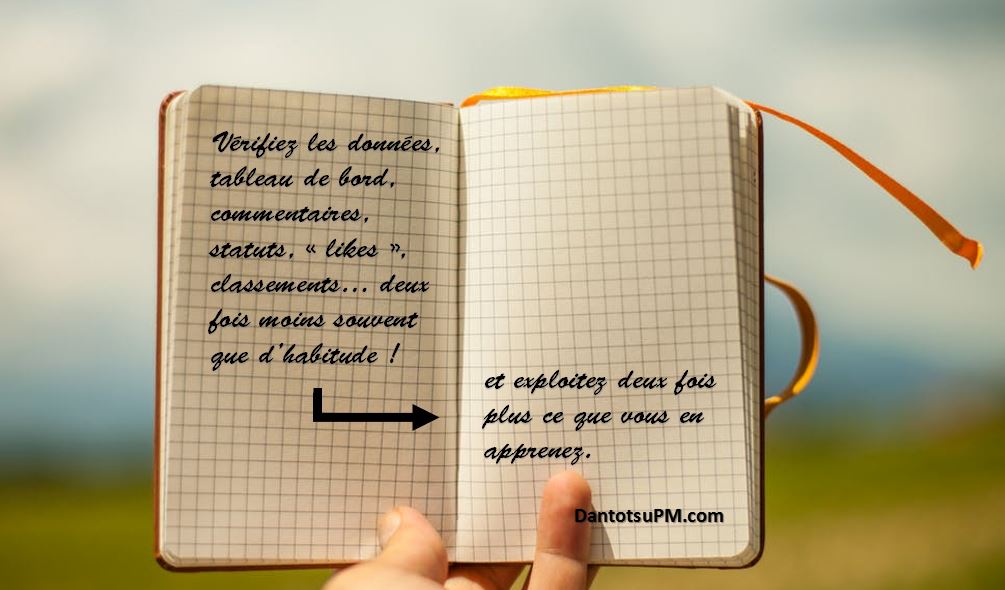 Vérifiez les données,
tableau de bord,
commentaires,
statuts, « likes »,
classements... deux
fois moins souvent
que d'habitude !
et exploitez deux fois
plus ce que vous en
apprenez.
DantotsuPM.com